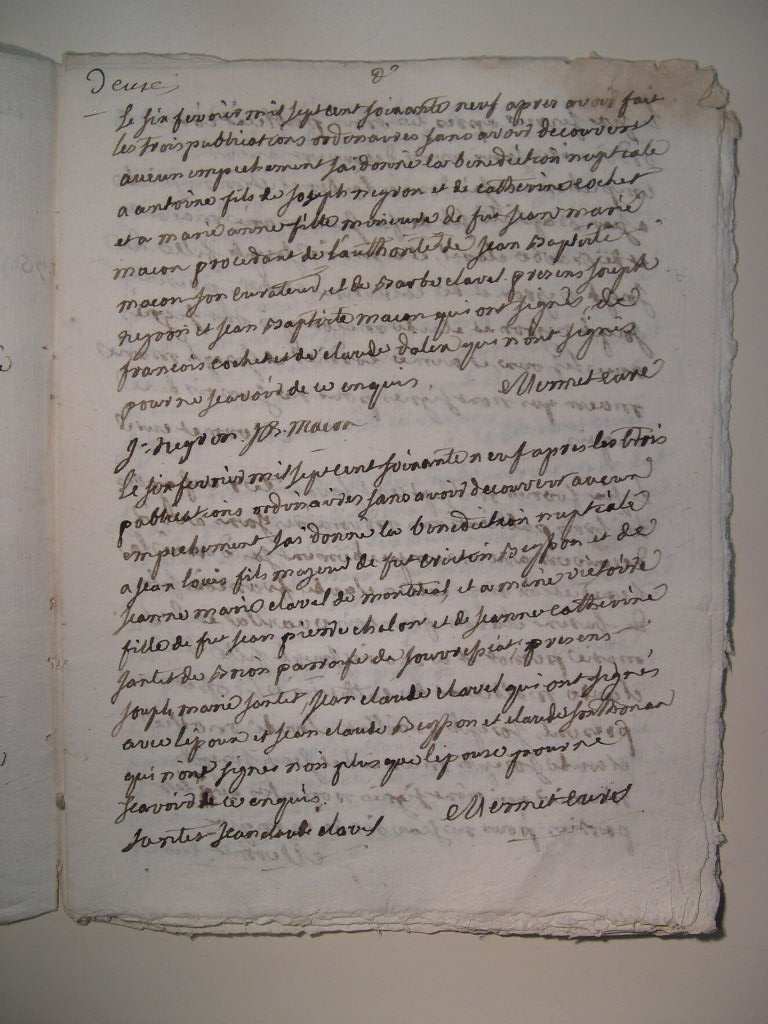 Deuxe
Le six fevrier mil sept cent soixante neuf apres avoir fait
les trois publications ordinaires sans avoir decouvert
aucun empechement jai donné la benediction nuptiale
a antoine fils de joseph neyron et de catherine cochet
et a marie anne fille mineure de fut jean marie
macon procedant de l'authorité de jean Baptiste
macon son curateur, et de Barbe clavel. presens joseph
neyron et jean Baptiste macon qui ont signés, de
francois cochet et de claude dalex qui n'ont signés
pour ne scavoir de ce enquis. Mermet curé
J. neyron JB. Macon
Le six fevrier mil sept cent soixante neuf apres les trois
publications ordinaires sans avoir decouvert aucun
empechement jai donné la benediction nuptiale
a jean louis fils majeur de fut Beysson et de
jeanne marie clavel de montreal, et a marie victoire
fille de fut jean pierre chalon et de jeanne catherine
jantet de Brion parroisse de presens
joseph marie jantet, jean claude clavel qui ont signés
avec l'epoux et jean claude Beysson et claude
qui n'ont signés non plus que l'epouse pour ne
scavoir de ce enquis. Mermet curé
jantet jean claude clavel